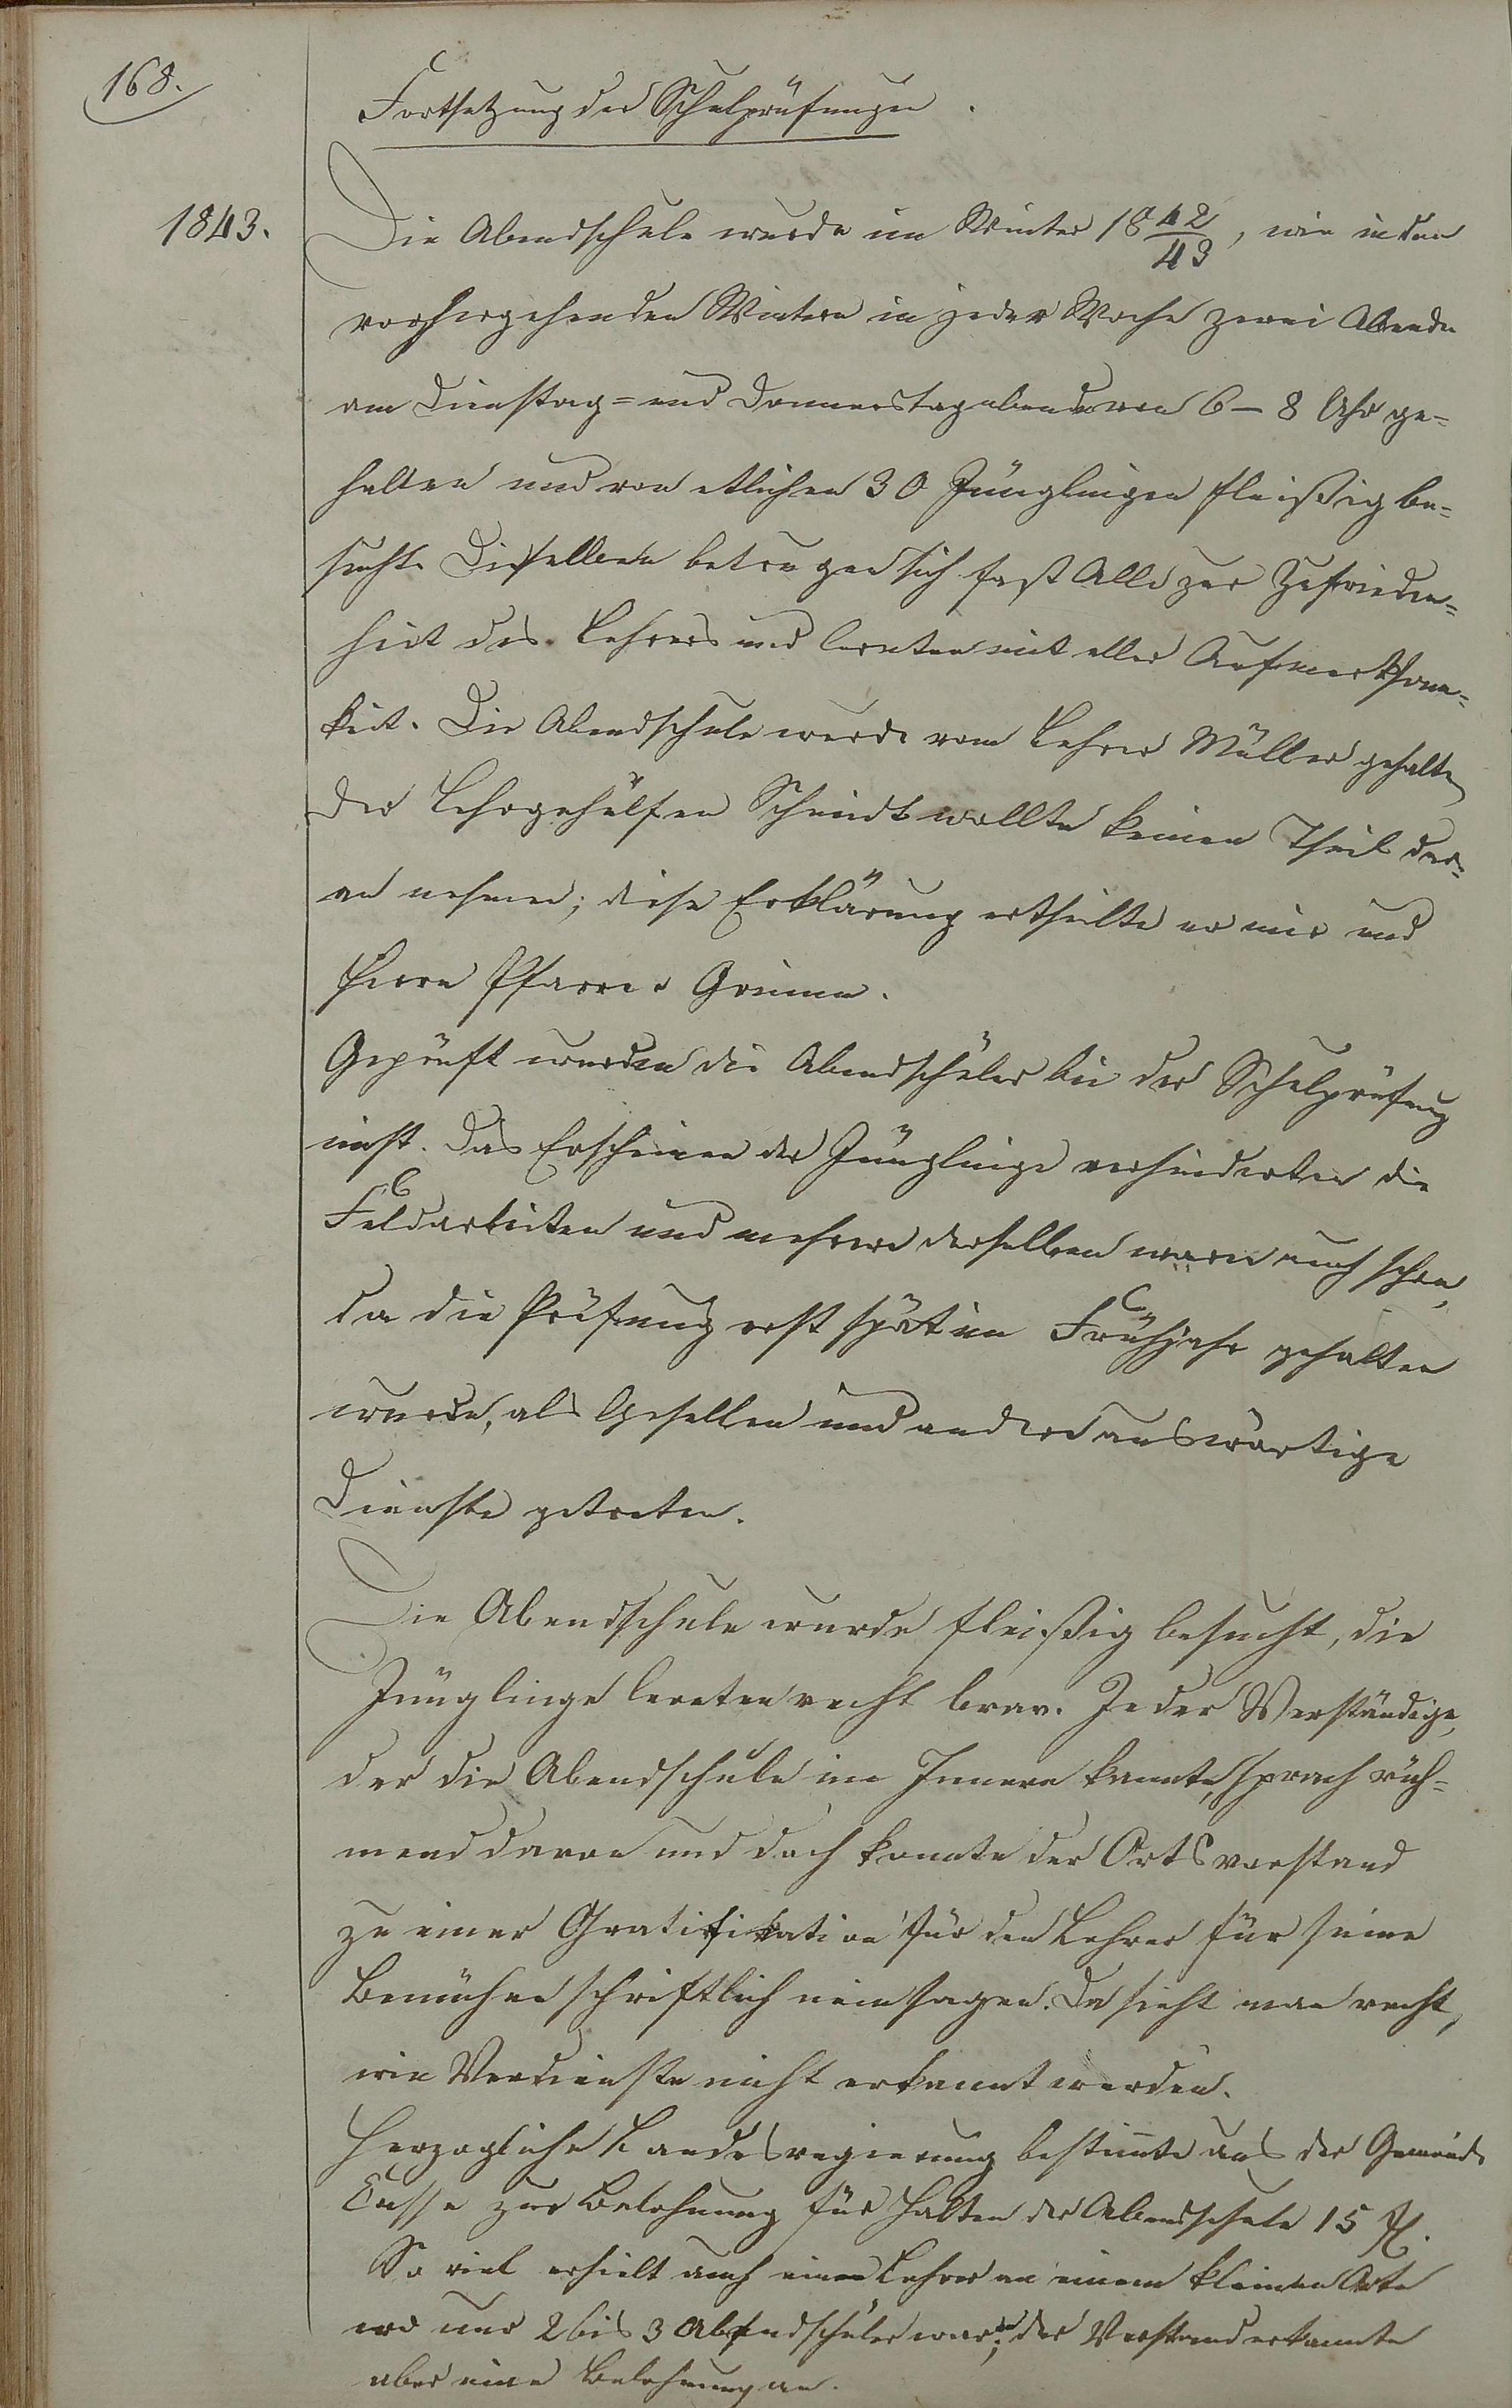 168.
Fortsetzung der Schulprüfungen.
1843.
Die Abendschule wurde im Winter 18 42/43, wie in den
vorhergehenden Wintern in jeder Woche zwei Abende
am Dienstag= und Donnerstagabend von 6 – 8 Uhr ge=
halten und von etlichen 30 Jünglingen fleißig be=
sucht. Dieselben betrugen sich fast Alle zur Zufrieden=
heit des Lehrers und lernten mit aller Aufmerksam=
keit. Die Abendschule wurde vom Lehrer Müller gehalten
Der Lehrgehülfen Schmidt wollte keinen Theil dar=
an nehmen; diese Erklärung ertheilte er mir und
Herrn Pfarrer Grimm.
Geprüft wurden die Abendschüler bei der Schulprüfung
nicht. Das Erscheinen der Jünglinge verhinderten die
Feldarbeiten und mehrere derselben waren auch schon,
da die Prüfung erst spät im Frühjahr gehalten
wurde, als Gesellen und andere auswärtige
Dienste getreten.
Die Abendschule wurde fleißig besucht, die
Jünglinge lernten recht brav. Jeder Verständige,
der die Abendschule im Innern kannte, sprach rüh=
mend davon und doch konnte der Ortsvorstand
zu einer Gratifikation für den Lehrer für seine
Bemühen schriftlich nein sagen. Da sieht man recht,
wie Verdienste nicht erkannt werden.
Herzogliche Landesregierung bestimmte aus der Gemeinde
Casse zur Belohnung für Halten der Abendschule 15 fl.
So viel erhielt auch einen Lehrer an einem kleinen Orte
wo nur 2 bis 3 Abendschüler waren; der Vorstand erkannte
aber eine Belohnung an.